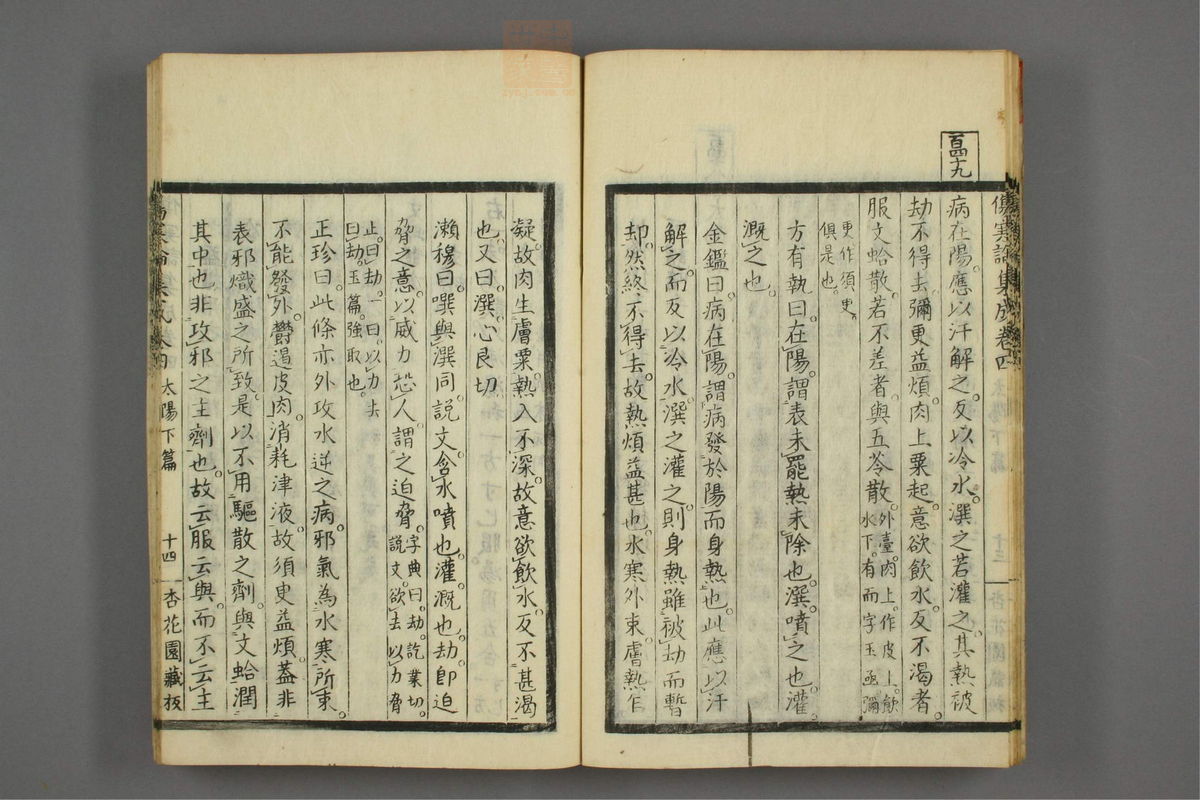 百四十九
傷寒論集成卷四 太陽下篇 十三
病在陽。應以汗解之。反以冷水。潠之若灌之。其熱被
劫不得去。彌更益煩。肉上粟起。意欲飲水。反不渴者。
服文蛤散。若不差者。與五苓散。外臺。肉上。作皮上。飲水下。有而字。玉函。彌
更作須更。俱是也。
方有執曰。在陽。謂表未罷熱未除也。潠。噴之也。灌。
溉之也。
金鑑曰。病在陽。謂病發於陽而身熱也。此應以汗
解之。而反以冷水。潠之灌之。則身熱雖被劫而暫
却。然終不得去。故熱煩益甚也。水寒外束。膚熱乍
凝。故肉生膚粟。熱入不深。故意欲飲水。反不甚渴
也。又曰。潠。心艮切。
瀨穆曰。噀與潠同。說文。含水噴也。灌。溉也。劫。卽迫
脅之意。以威力恐人。謂之迫脅。字典曰。劫。訖業切。說文。欲去以力脅
止。曰劫。一曰。以力去曰劫。玉篇。強取也。
正珍曰。此條亦外攻水逆之病。邪氣為水寒所束。
不能發外。鬱遏皮肉。消耗津液。故須更益煩。蓋非
表邪熾盛之所致。是以不用驅散之劑。與文蛤潤
其中也。非攻邪之主劑也。故云服云與。而不云主
傷寒論集成卷四 太陽下篇 十四 杏花園藏板